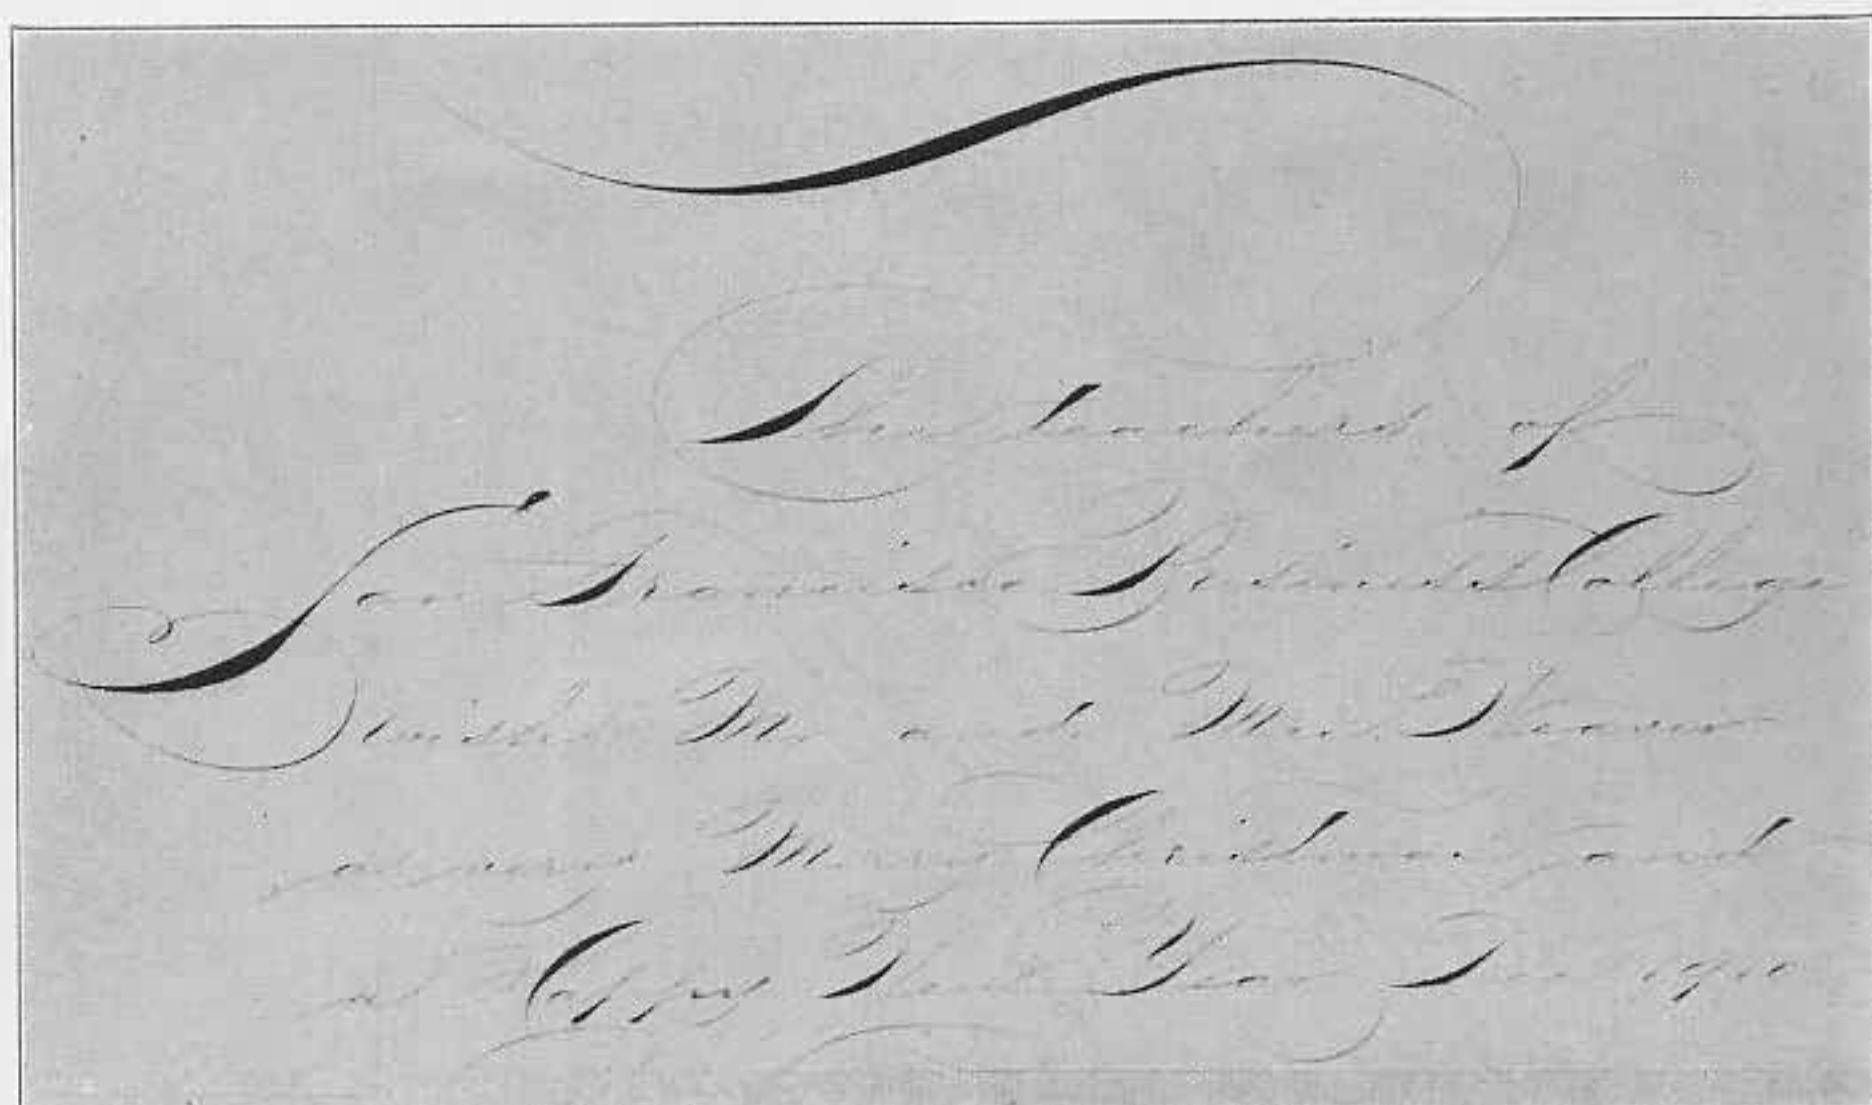 The teachers of
San Francisco Business College
wishes Mr. and Mrs.
a very Merry Christmas and
a Happy New Year For 1910